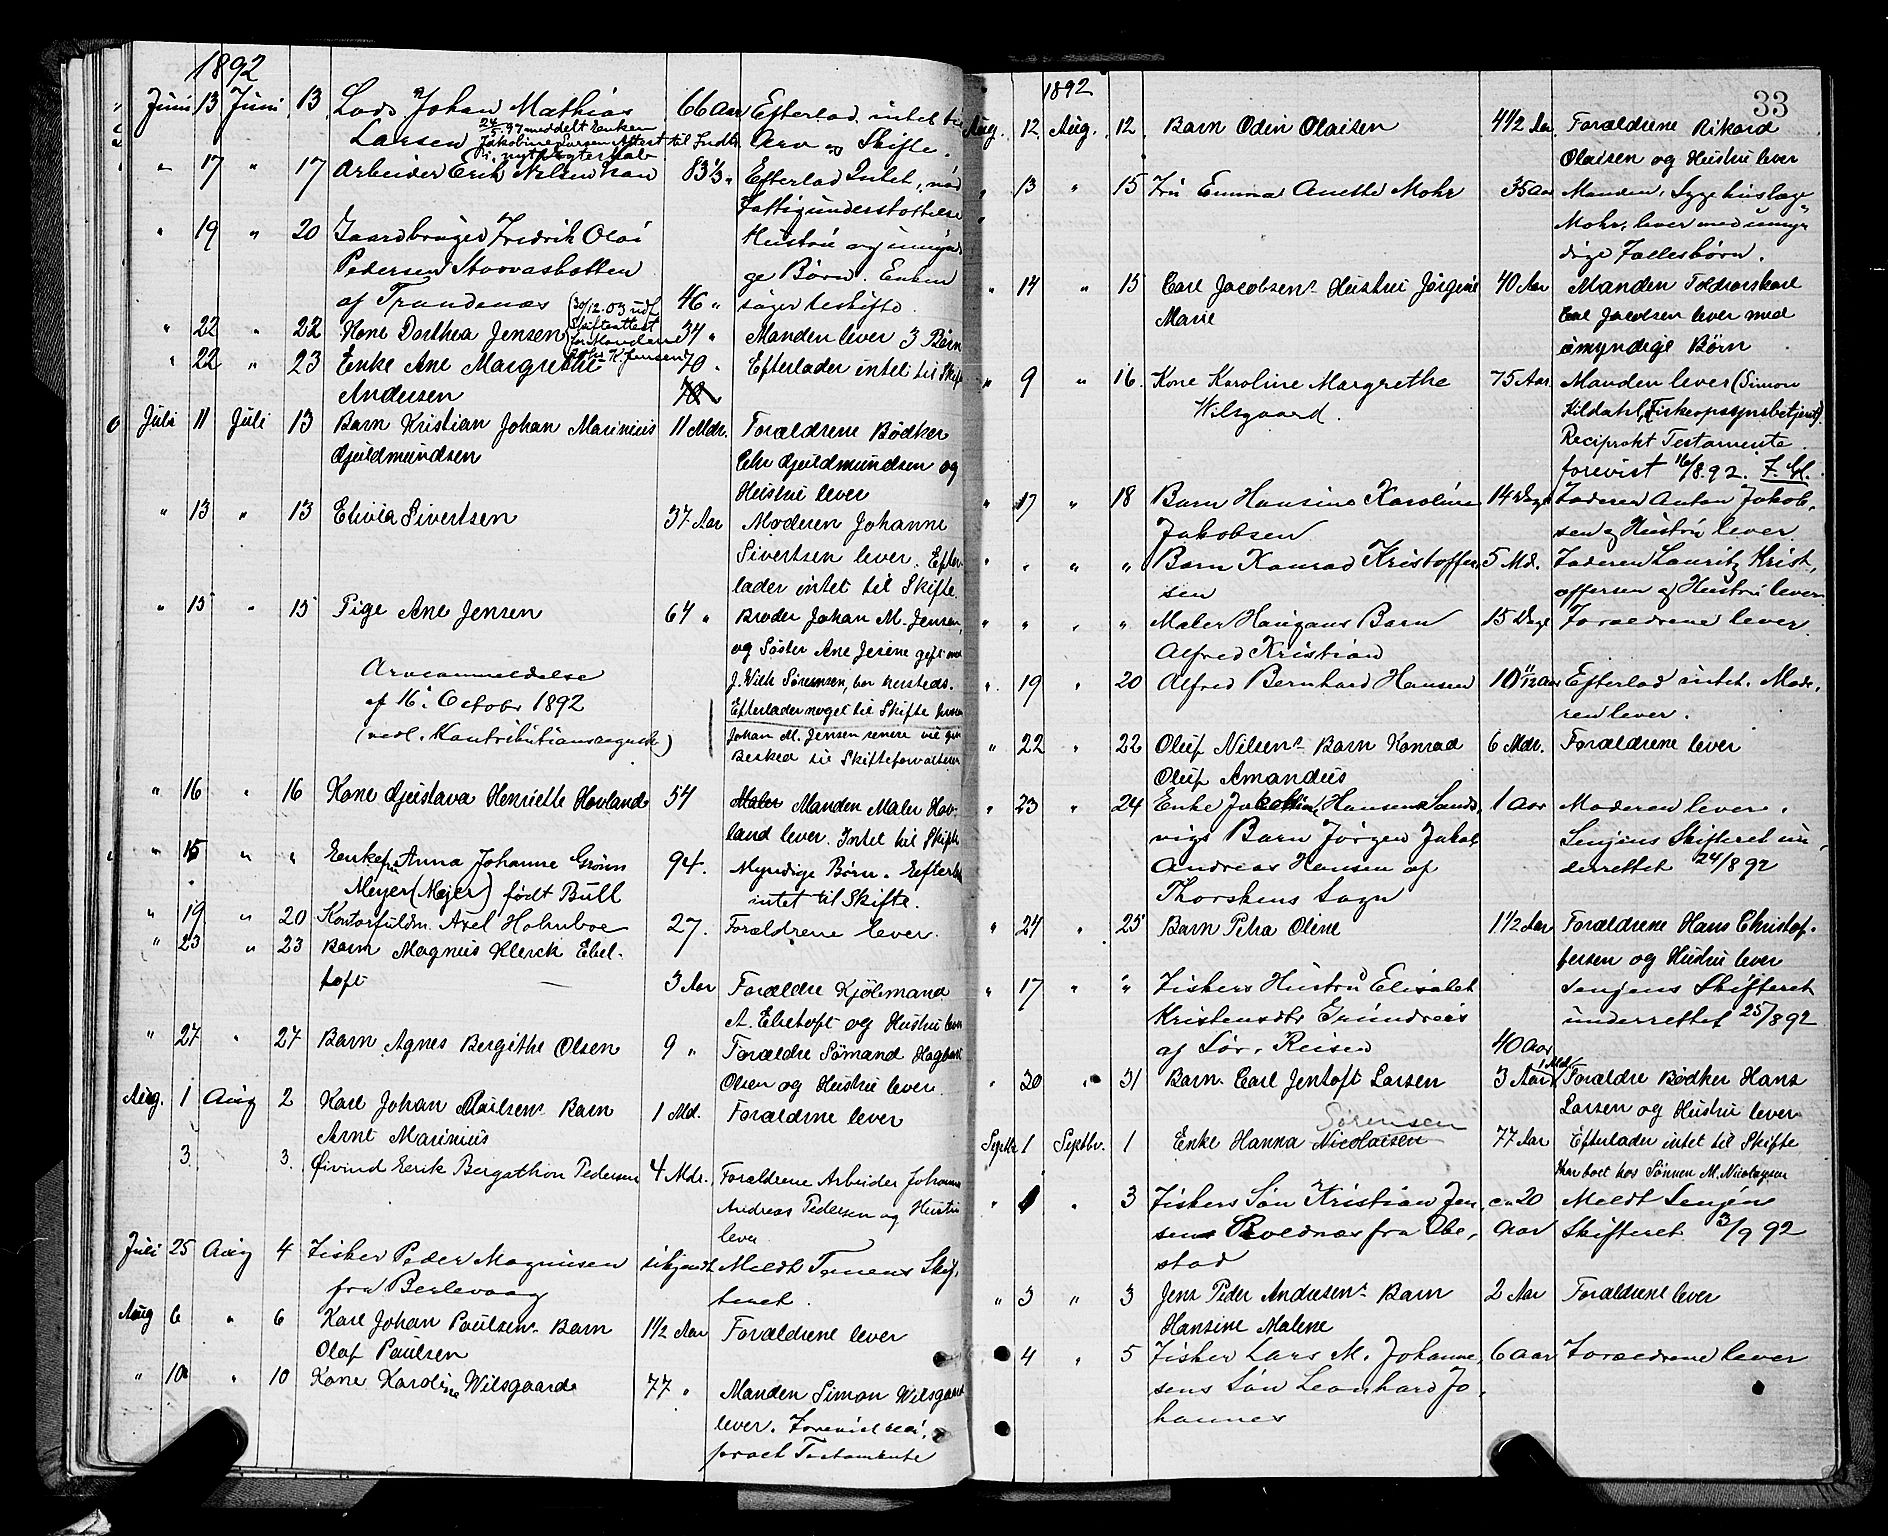 1892
Juni 13 Juni 13 Lods Johan Mathias 66 Aar Efterlod intet til
Larsen 24/5.97 meddelt Enken Jakobine Larsen Attest til Indtr. i nyt Ægteskab Arv og Skifte.
" 17 " 17 Arbeider Erik Nilsen 83 1/3 " Efterlod Intet, nød
Fattigunderstøttelse
" 19 " 20 Gaardbruger Fredrik Olai Hustru og umyndi
Pedersen Storvasbotten ge Børn. Enken
af Trandenæs 46 " søger beskifte.
" 22 " 22 Kone Dorthea Jensen (30/12.03 udf. Skifteattest for Manden Johs K. Jensen) 34 " Manden lever 3 Børn
" 22 " 23 Enke Ane Margrethe 70 " Efterlader intet til Skifte
Andersen
Juli 11 Juli 13 Barn Kristian Johan Marinius 11 Mdr. Forældrene Bødker
Guldmundsen Chr Guldmundsen og
Hustru lever
" 13 " 13 Elivia Sivertsen 37 Aar Moderen Johanne
Sivertsen lever. Efter-
lader intet til Skifte.
" 15 " 15 Pige Ane Jensen 64 " Broder Johan M. Jensen,
og Søster Ane Jesine gift med
Arveanmeldelse J. Wilh Sørensen, bor hersteds.
af 16. October 1892 Efterlader noget til Skifte
(vedl. Kontributionsregnsk.) Johan M. Jensen senere vil give
Besked til Skifteforvalteren
" 16 " 16 Kone Gustava Henriette Hovland 54 Maler Manden Maler Hov-
land lever. Intet til Skifte
" 15 " " Enkefru Anna Johanne Grønn 94. Myndige Børn. Efterlod
Meyer (Mejer) født Bull intet til Skifte.
" 19 " 20 Kontorfuldm. Axel Holmboe 27. Forældrene lever.
" 23 " 23 Barn Magnus Klerck Ebel-
toft 3 Aar Forældre Kjøbmand
A. Ebeltoft og Hustru lever
" 27 " 27 Barn Agnes Bergithe Olsen 9 " Forældre Sømand Hagbart
Olsen og Hustru lever
Aug. 1 Aug 2 Karl Johan Paulsens Barn 1 Md. Forældrene lever
Arnt Marinius
3 3. Øivind Erik Bergethon Pedersen 4 Mdr. Forældrene Arbeider Johan
Andreas Pedersen og Hustru
lever
Juli 25 Aug 4 Fisker Peder Magnusen ubkjendt Meldt Tanens Skif-
fra Berlevaag teret.
Aug 6 " 6 Karl Johan Paulsens Barn 1 1/2 Aar Forældrene lever
Olaf Paulsen
" 10 " 10 Kone Karoline Wilsgaard 77 " Manden Simon Wilsgaard
lever. Forevist reci-
prookt Testamente
1892
33
Aug. 12 Aug. 12 Barn Odin Olaisen 4 1/2 Aar Forældrene Rikard
Olaisen og Hustru lever
" 13 " 15 Fru Emma Anette Mohr 35 Aar Manden, Sygehuslæge
Mohr, lever med umyn-
dige Fællesbørn.
" 14 " 15 Carl Jacobsens Hustru Jørgine 40 Aar Manden Toldrorskarl
Marie Carl Jacobsen lever med
umyndige Børn
" 9 " 16. Kone Karoline Margrethe 75 Aar. Manden lever (Simon
Wilsgaard. Kildahl, Fiskeopsynsbetjent).
Reciprokt Testamente
forevist 16/8.92.
" 17 " 18 Barn Hansine Karoline 14 Dage Faderen Anton Jakob-
Jakobsen sen og Hustru lever
" " " " Barn Konrad Kristoffer- 5 Md. Faderen Lauritz Krist-
sen offersen og Hustru lever
" " " " Maler Haugans Barn 15 Dage Forældrene lever
Alfred Kristian
" 19 " 20 Alfred Bernhard Hansen 10 11/12 Aar Efterlod intet. Mode-
ren lever.
" 22 " 22 Oluf Nilsens Barn Konrad 6 Mdr. Forældrene lever
Oluf Amandus
" 23 " 24 Enke Jakobine Hansen Sand- 1 Aar Moderen lever.
vigs Barn Jørgen Jakob Senjens Skifteret un-
Andreas Hansen af derrettet 24/8 92
Thorskens Sogn
" 24 " 25 Barn Petra Oline 1 1/2 Aar Forældrene Hans Christof-
fersen og Hustru lever
" 17 " " Fiskers Hustru Elisabet Senjens Skifteret
Kristensdtr underrettet 25/8 92
af Sør-Reisen 40 Aar
" 30 " 31 Barn Carl Jentoft Larsen 3 Aar 1 Md. Forældre Bødker Hans
Larsen og Hustru lever
Sørensen
Septbr 1 Septbr. 1 Enke Hanna Nicolaisen 77 Aar Efterlader intet til Skifte
Har boet hos Sønnen M. Nicolaysen
" 1 " 3 Fiskers Søn Kristian Jen- ca 20 Meldt Senjen
sens Boldnæs fra Ibe- Aar Skifteret 3/9 92
stad
" 3 " 3 Jens Peder Andresens Barn 2 Aar Forældrene lever
Hansine Malene
4 " 5 Fisker Lars M. Johanne- 6 Aar Forældrene lever
sens Søn Leonhard Jo-
hannes